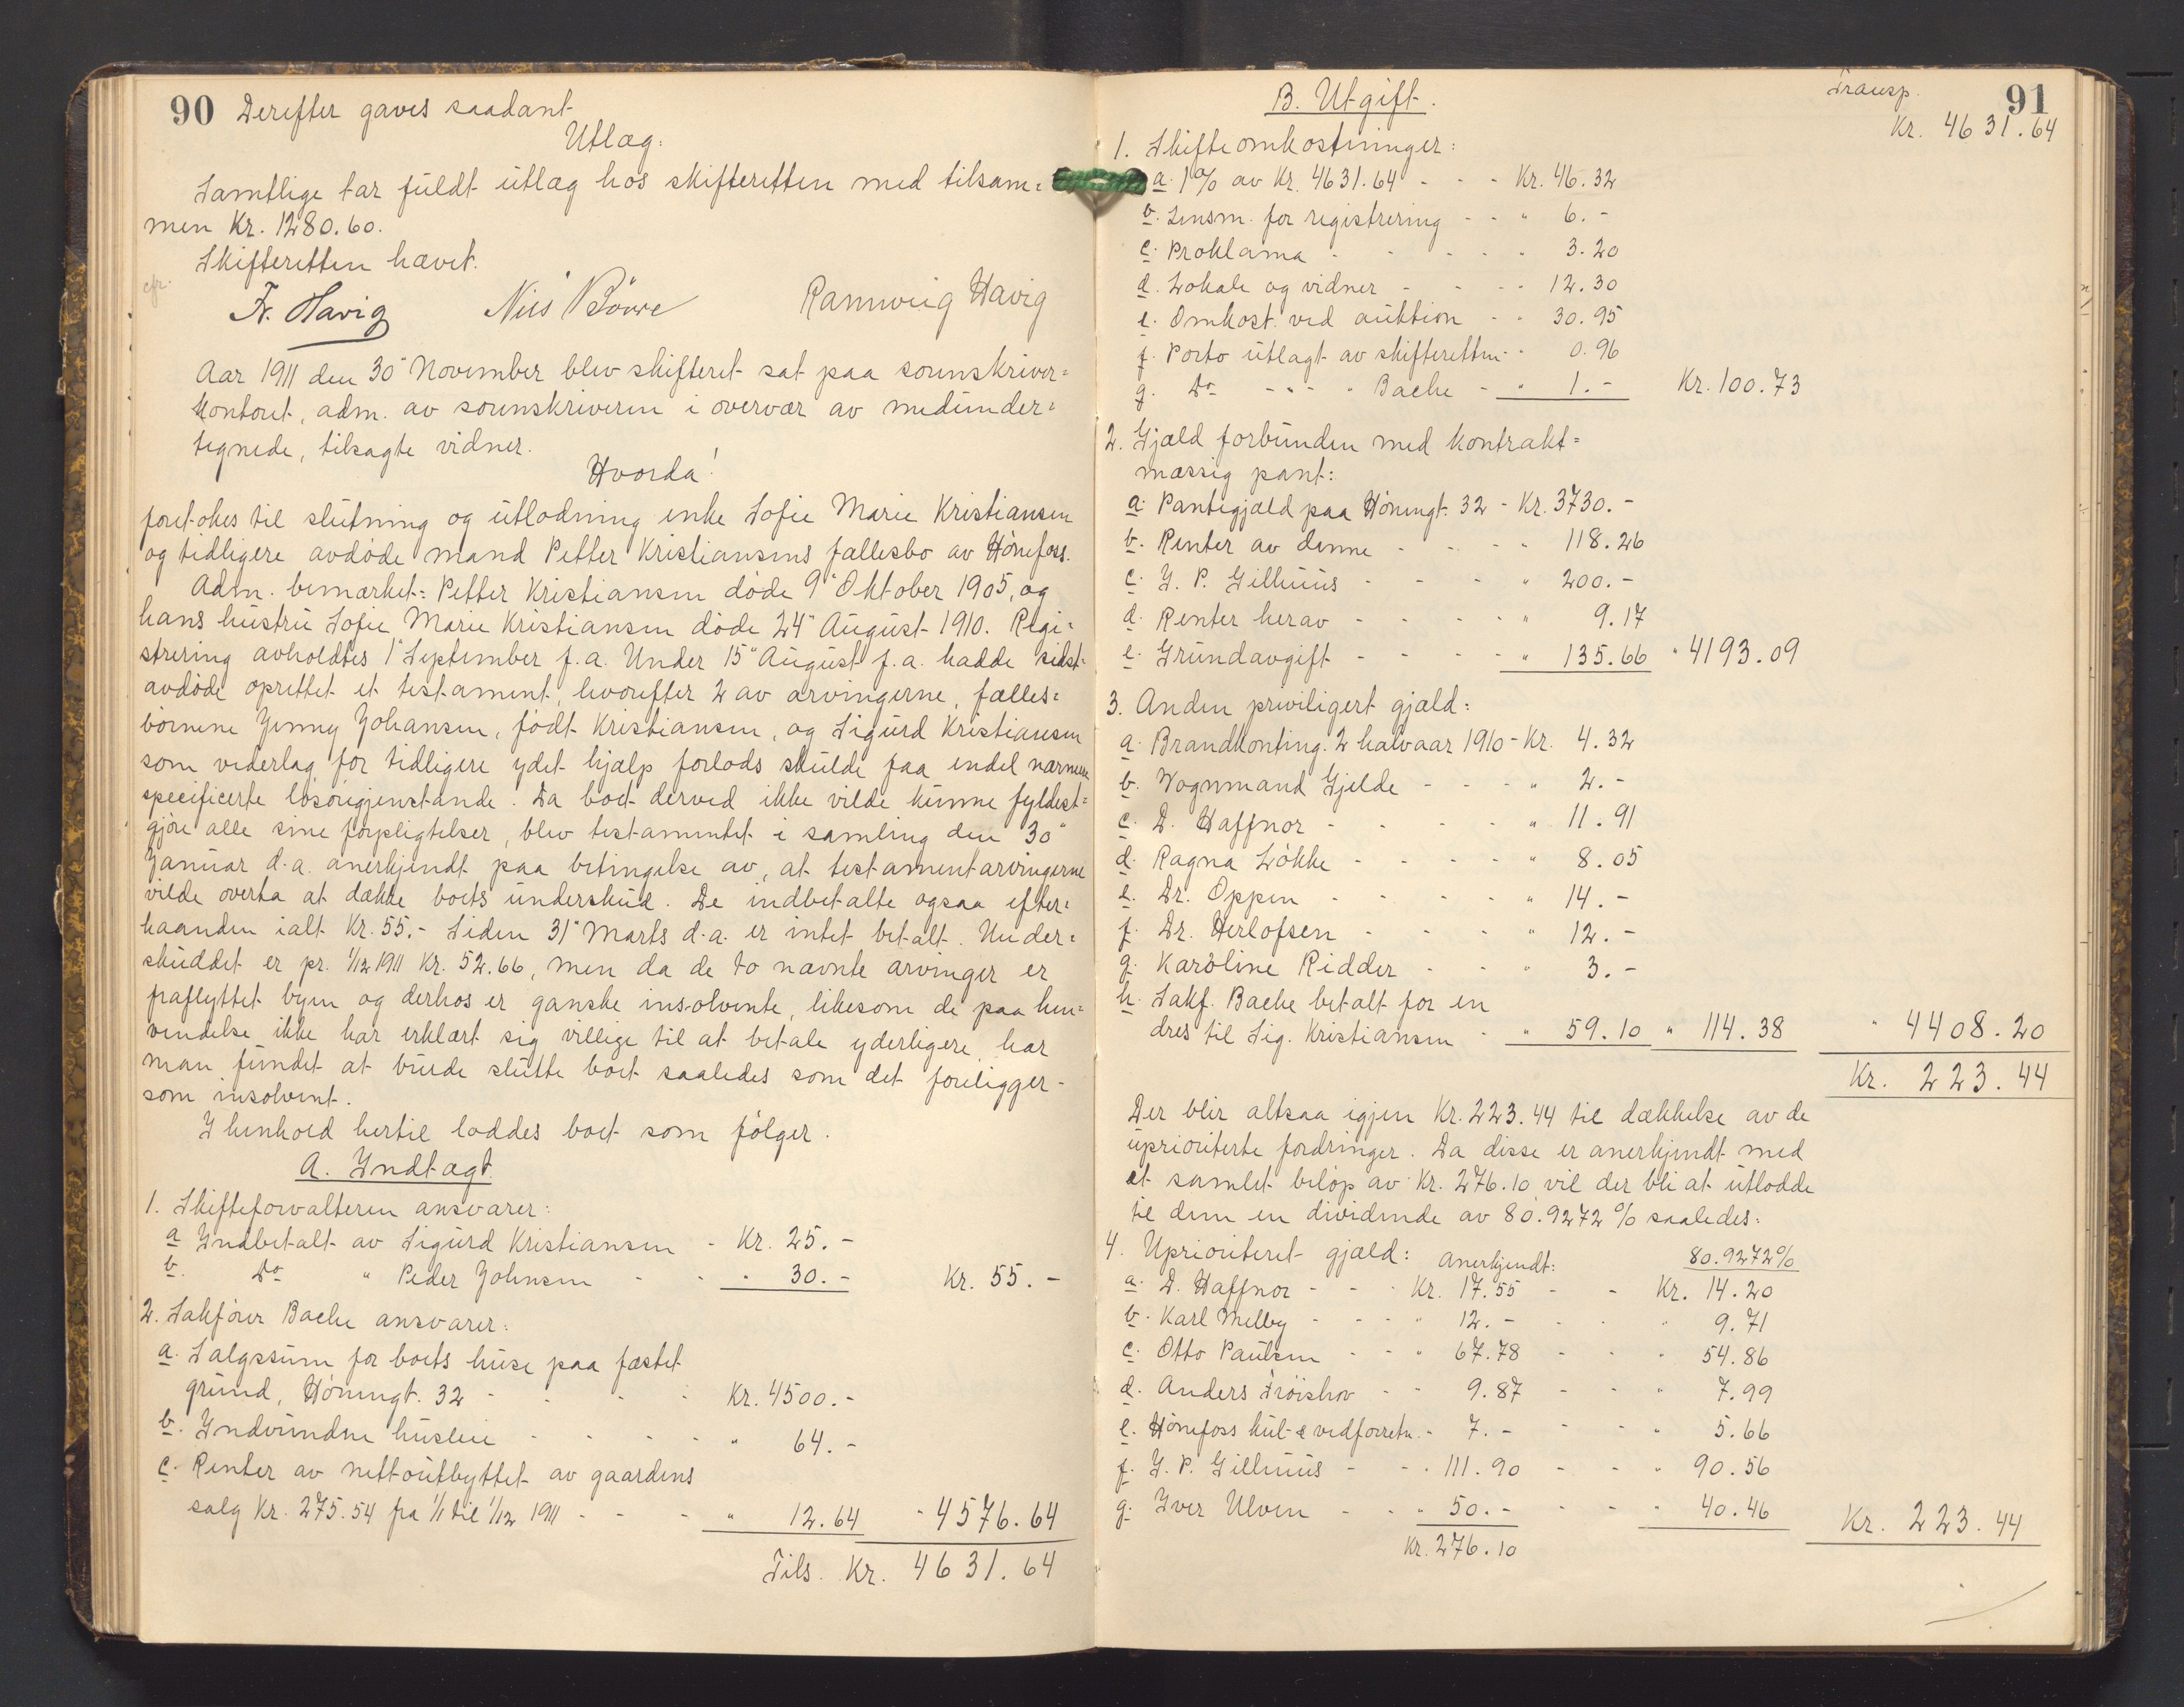 90 Derefter gaves saadant
Utlæg:
Samtlige tar fuldt utlæg hos skifteretten med tilsam=
men Kr. 1280.60.
Skifteretten hævet.
cfr.
Fr. Havig Nils Rannveig Havig
Aar 1911 den 30" November blev skifteret sat paa sorenskriver=
kontoret, adm. av sorenskriveren i overvær av medunder=
tegnede, tilsagte vidner.
Hvorda!
foretokes til slutning og utlodning enke Sofie Marie Kristiansen
og tidligere avdöde mand Petter Kristiansens fællesbo av Hönefoss.
Adm. bemærket: Petter Kristiansen döde 9" Oktober 1905, og
hans hustru Sofie Marie Kristiansen döde 24" August 1910. Regi=
strering avholdtes 1" September f.a. Under 15" August f.a. hadde sidst=
avdöde oprettet et testament, hvorefter 2 av arvingerne, fælles=
börnene Jenny Johansen, födt Kristiansen, og Sigurd Kristiansen
som vederlag for tidligere ydet hjælp forlods skulde faa endel nærmere
specificerte lösöregjenstande. Da boet derved ikke vilde kunne fyldest=
gjöre alle sine forpligtelser, blev testamentet i samling den 30"
Januar d.a. anerkjendt paa betingelse av, at testamentarvingerne
vilde overta at dække boets underskud. De indbetalte ogsaa efter=
haanden ialt Kr. 55.- Siden 31" Marts d.a. er intet betalt. Under=
skuddet er pr. 1/12 1911 Kr. 52.66, men da de to nævnte arvinger er
fraflyttet byen og derhos er ganske insolvente, likesom de paa hen=
vendelse ikke har erklært sig villige til at betale yderligere, har
man fundet at burde slutte boet saaledes som det foreligger -
som insolvent.
I henhold hertil loddes boet som fölger.
A. Indtægt.
1. Skifteforvalteren ansvarer:
a Indbetalt av Sigurd Kristiansen - Kr. 25.-
b. Do " Peder Johnsen - - " 30.- Kr. 55.-
2. Sakförer Bache ansvarer:
a. Salgssum for boets huse paa fæstet
grund, Hönengt. 32 - - - - Kr. 4500.-
b. Indvundne husleie - - - - " 64.-
c. Renter av nettoutbyttet av gaardens
salg Kr. 275.54 fra 1/1 til 1/12 1911 - - - " 12.64 " 4576.64
Tils. Kr. 4631.64
B. Utgift. Transp. 91
Kr. 4631.64
1. Skifteomkostninger:
a. 1% av Kr. 4631.64 - - - Kr. 46.32
b. Lensm. for registrering - - " 6.-
c. Proklama - - - - - " 3.20
d. Lokale og vidner - - - - 12.30
e. Omkost. ved auktion - " 30.95
f. Porto utlagt av skifteretten - " 0.96
g. Do - " - " Bache - " 1.- Kr. 100.73
2. Gjæld forbunden med kontrakt=
mæssig pant:
a. Pantegjæld paa Hönengt. 32 - Kr. 3730.-
b. Renter av denne - - - - " 118.26
c. J. P. Gillhuus - - - - " 200.-
d. Renter herav - - - - " 9.17
e. Grundavgift - - - - " 135.66 " 4193.09
3. Anden priviligert gjæld:
a. Brandkonting. 2 halvaar 1910 - Kr. 4.32
b. Vognmand Gjelde - - - " 2.-
c. D. Haffnor - - - - " 11.91
d. Ragna Lökke - - - - " 8.05
e. Dr. Oppen - - - - " 14.-
f. Dr. Herlofsen - - - " 12.-
g. Karoline Ridder - - " 3.-
h. Sakf. Bache betalt for en
dres til Sig. Kristiansen - " 59.10 " 114.38 " 4408.20
Kr. 223.44
Der blir altsaa igjen Kr. 223.44 til dækkelse av de
uprioriterte fordringer. Da disse er anerkjendt med
et samlet belöp av Kr. 276.10 vil der bli at utlodde
til dem en dividende av 80.9272 % saaledes:
4. Uprioriteret gjæld: Anerkjendt: 80.9272%
a. D. Haffnor - - - Kr. 17.55 - - Kr. 14.20
b. Karl Melby - - - " 12.- - - " 9.71
c. Otto Paulsen - - " 67.78 - - " 54.86
d. Anders Tröishov - - " 9.87 - - " 7.99
e. Hönefoss kul- & vedforretn. - 7.- - - " 5.66
f. J. P. Gillhuus - - " 111.90 - - " 90.56
g. Iver Ulven - - " 50.- - - " 40.46 Kr. 223.44
Kr. 276.10